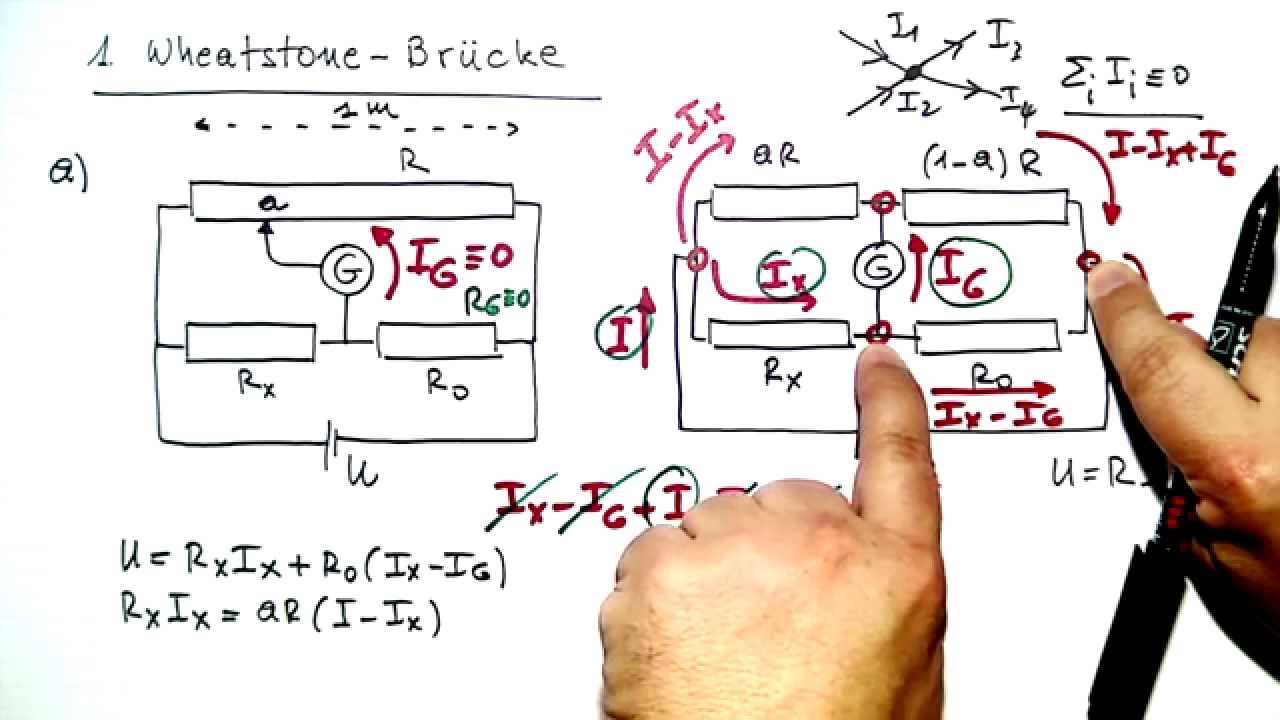 1. Wheatstone-Brücke
1 m
a)
R
a
G
I_G ≡ 0
R_G ≡ 0
R_x
R_0
U
I_1
I_3
I_2
I_4
Σ_i I_i ≡ 0
I-I_x
I-I_x+I_G
aR
(1-a)R
I_x
G
I_G
I
R_x
R_0
I_x-I_G
U=R
I_x-I_G+I
U=R_xI_x+R_0(I_x-I_G)
R_xI_x=aR(I-I_x)